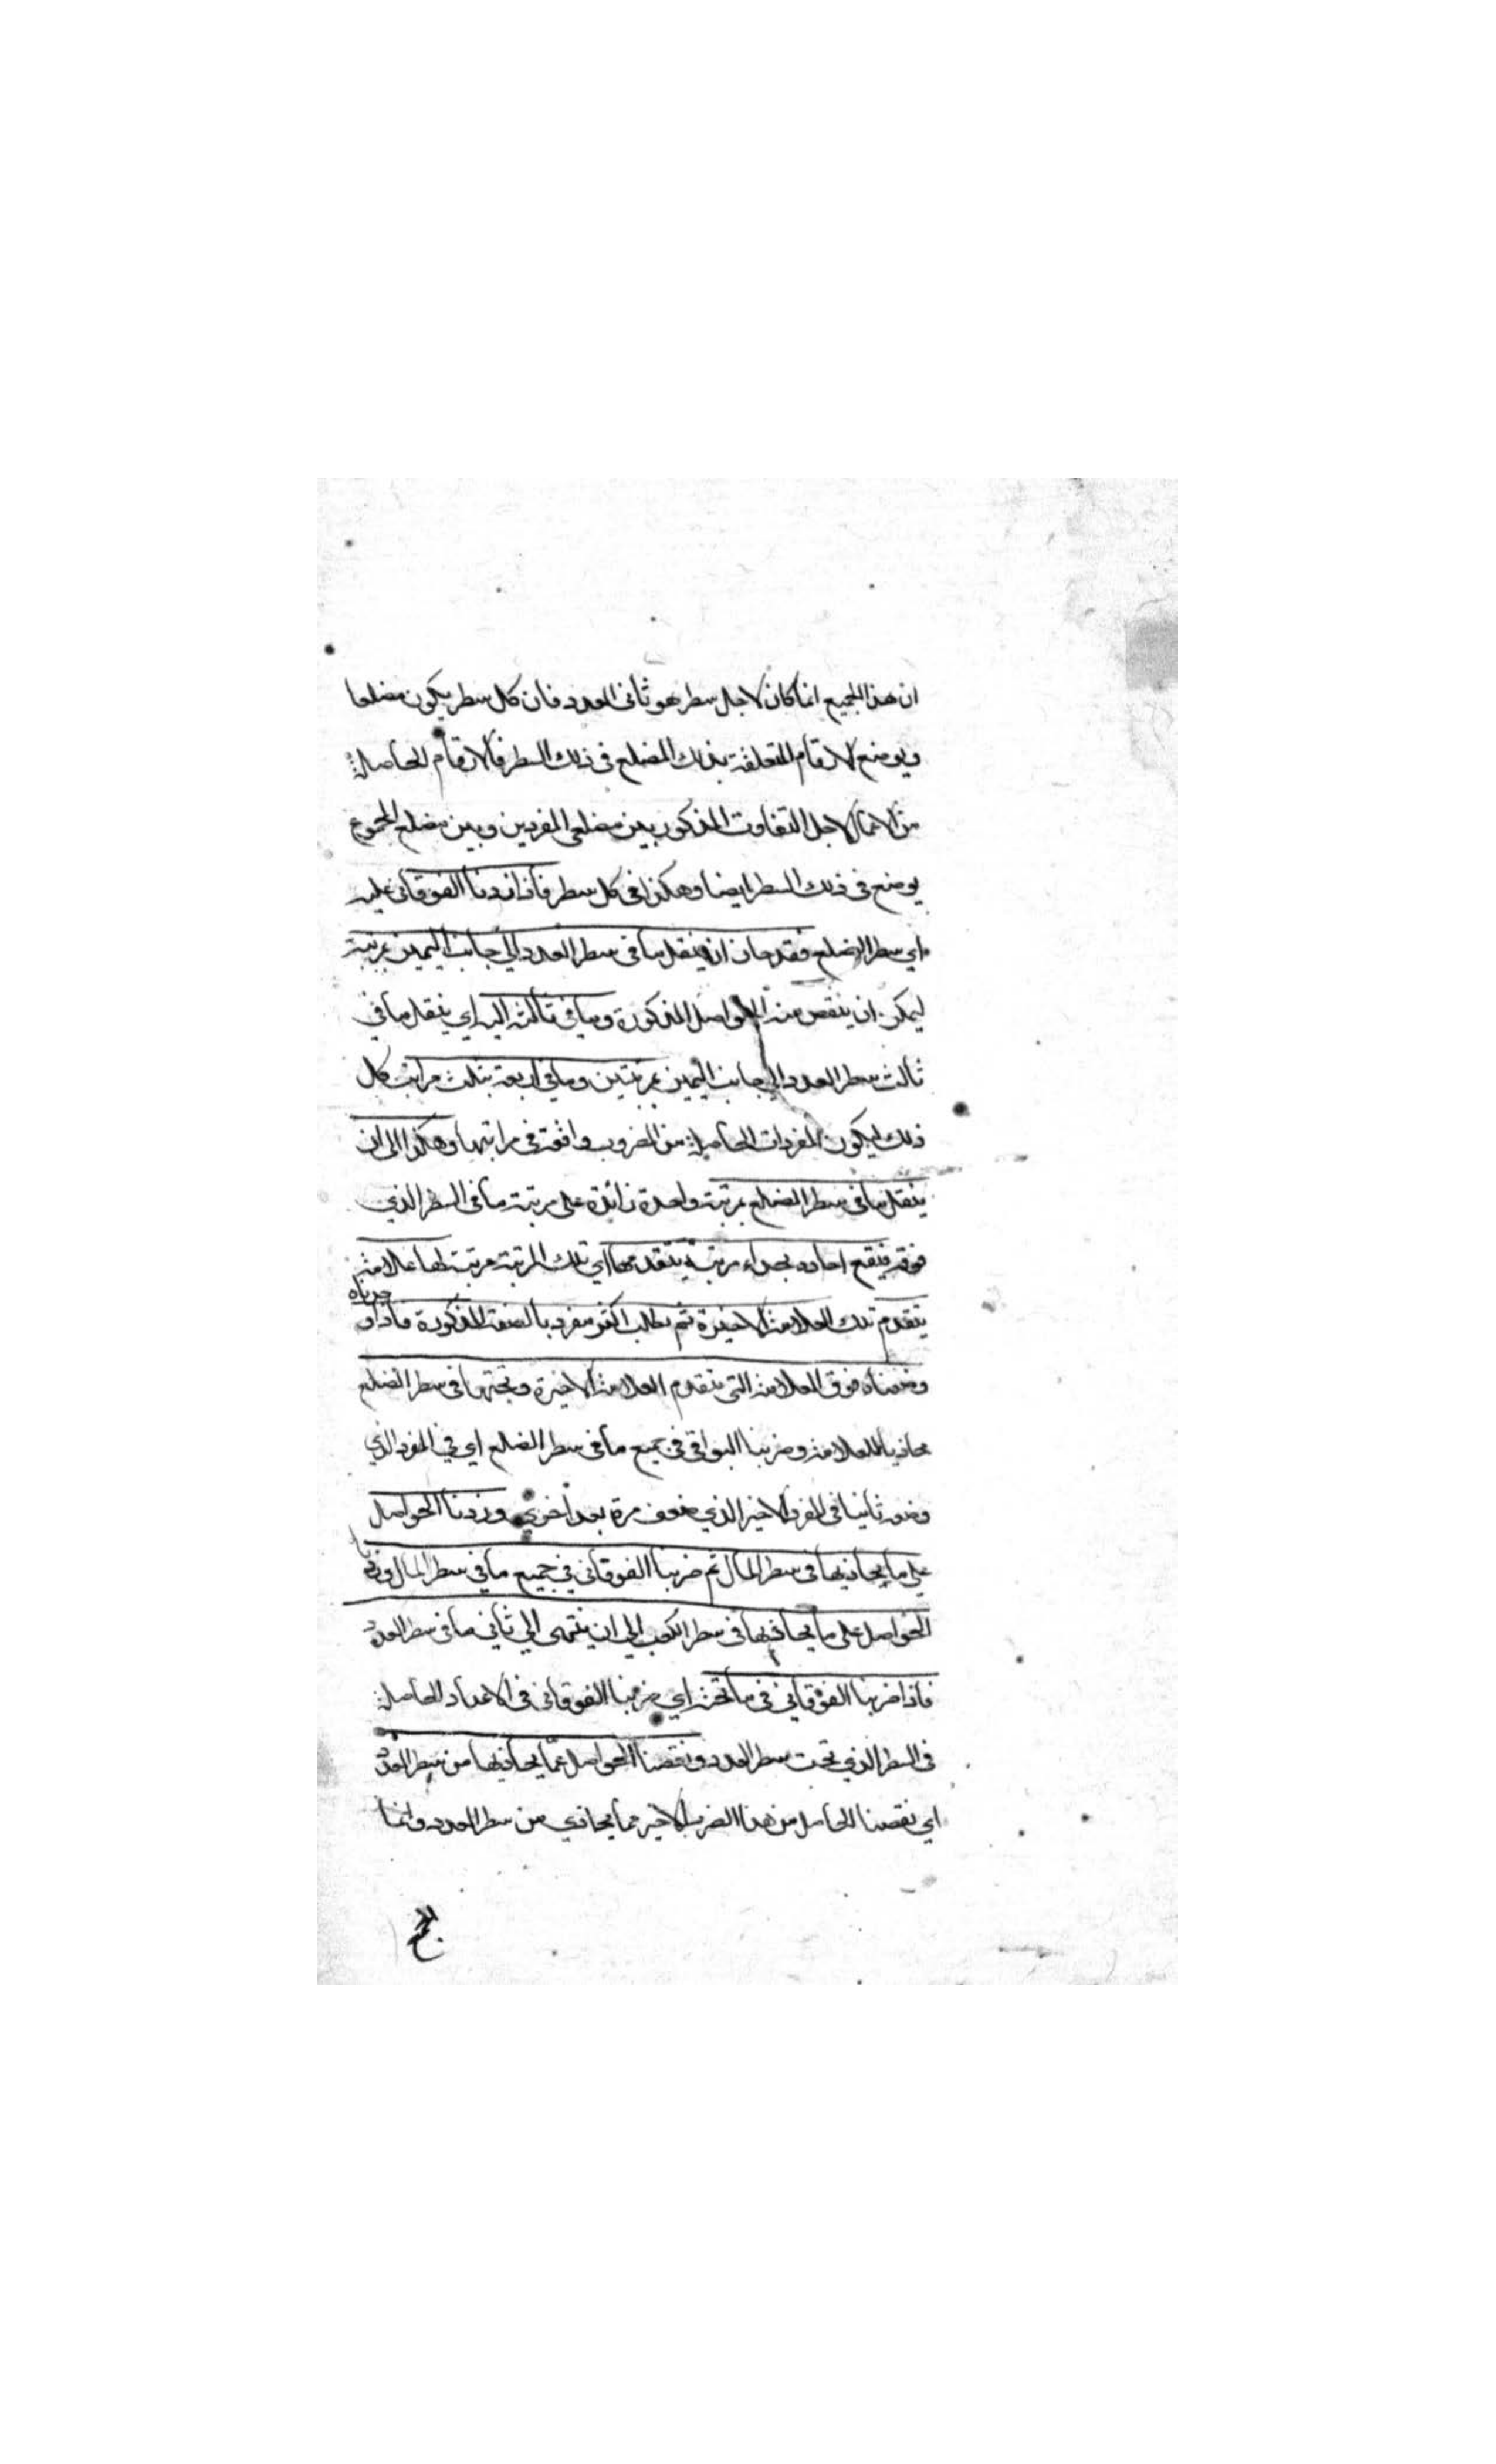 ان هذا الجميع انما كان لاجل سطر هو ثانى العدد فان كل سطر يكون مضلعا
ويوضع الارقام المتعلقة بذلك المضلع فى ذلك السطر فالارقام الحاصلة
من الاعمال لاجل التفاوت المذكور بين مضلعى المفردين وبين مضلع المجموع
يوضع فى ذلك السطر ايضا وهكذا فى كل سطر فاذا زدنا الفوقانى عليه
اي سطر الضلع فقد حان ان ينقل ما فى سطر العدد الي جانب اليمين بمرتبة
ليمكن ان ينقص منه الحواصل المذكورة وما في ثالثه اليه اي ينقل ما في
ثالث سطر العدد الي جانب اليمين بمرتبتين وما في اربعة بثلث مراتب كل
ذلك ليكون المفردات الحاصلة من الضروب واقعة فى مراتبها وهكذا الى ان
ينقل ما فى سطر الضلع بمرتبة واحدة زائدة على مرتبة ما فى السطر الذي
فوقه فيقع احاده بحذاء مرتبة يتقدمها اي تلك المرتبة مرتبة لها علامة
يتقدم تلك العلامة الاخيرة ثم يطلب اكثر مفرد بالصفة المذكورة فاذا وجدناه
وضعناه فوق العلامة التى يتقدم العلامة الاخيرة وتحتها فى سطر الضلع
محاذيا للعلامة وضربنا الفوقانى فى جميع ما فى سطر الضلع اي في المفرد الذي
وضع ثانيا فى المفرد الاخير الذي ضعف مرة بعد اخري وزدنا الحواصل
علي ما يحاذيها فى سطر المال ثم ضربنا الفوقاني في جميع ما في سطر المال وزدنا
الحواصل على ما يحاذيها فى سطر الكعب الي ان ينتهى الي ثاني ما فى سطر العدد
فاذا ضربنا الفوقاني فى ما تحته اي ضربنا الفوقانى فى الاعداد الحاصلة
فى السطر الذي تحت سطر العدد ونقصنا الحواصل عما يحاذيها من سطر العدد
اي نقصنا الحاصل من هذا الضرب الاخير مما يحاذي من سطر العدد وانما